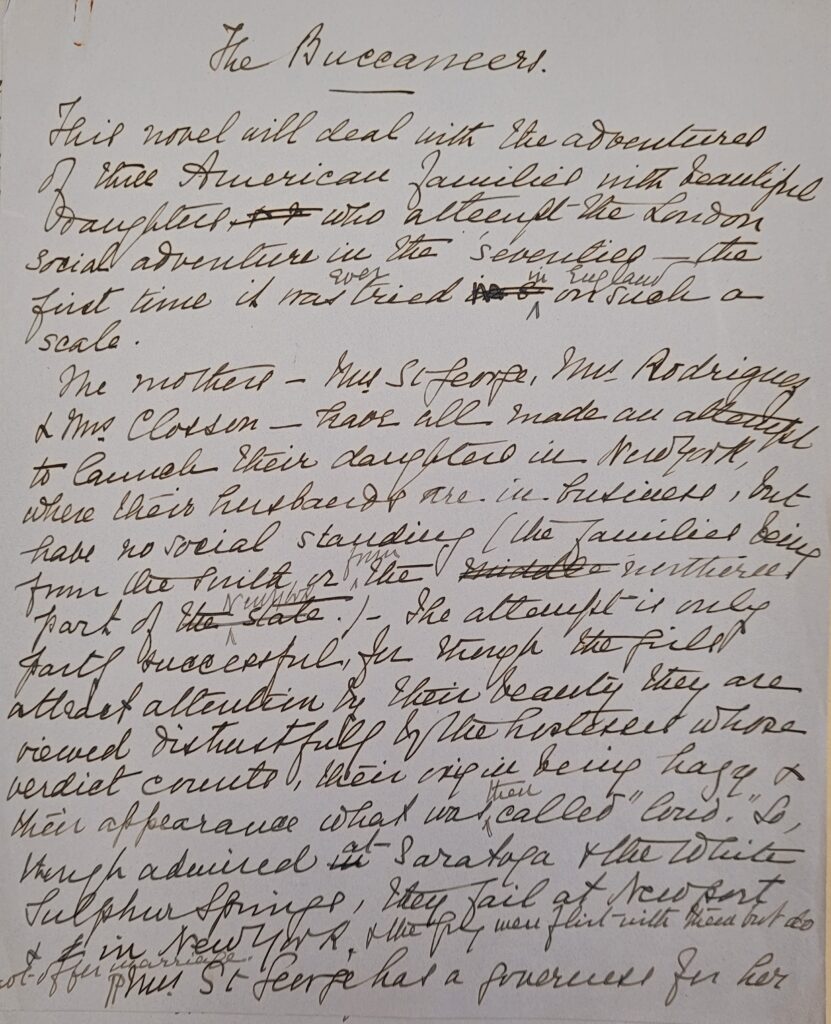 The Buccaneers.
This novel will deal with the adventures
of three American families with beautiful
daughters who attempt the London
social adventure in the 'seventies — the
first time it was ever tried in England on such a
scale.
The mothers — Mrs St George, Mrs Rodriguez
& Mrs Closson — have all made an attempt
to launch their daughters in New York,
where their husbands are in business, but
have no social standing (the families being
from the South, or from the middle northern
part of the state New York.) — The attempt is only
partly successful, for though the girls
attract attention by their beauty they are
viewed distrustfully by the hostesses whose
verdict counts, their origin being hazy &
their appearance what was then called "loud." So,
though admired at Saratoga & the White
Sulphur Springs, they fail at Newport
& in New York, & the young men flirt with them but do
not offer marriage.
Mrs St George has a governess for her